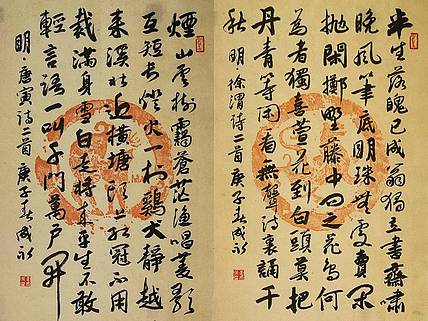 半生落魄已成翁獨立書齋嘯
晚風筆底明珠無處賣閑
拋閑擲野藤中問之花鳥何
為者獨喜萱花到白頭莫把
丹青等閑看無聲詩裏誦千
秋明徐渭詩二首庚子春成永
煙山雲樹靄蒼茫漁唱菱歌
互短長燈火一村雞犬靜越
來溪北近橫塘頭上紅冠不用
裁滿身雪白走將來平生不敢
輕言語一叫千門萬戶開
明·唐寅詩二首庚子春成永